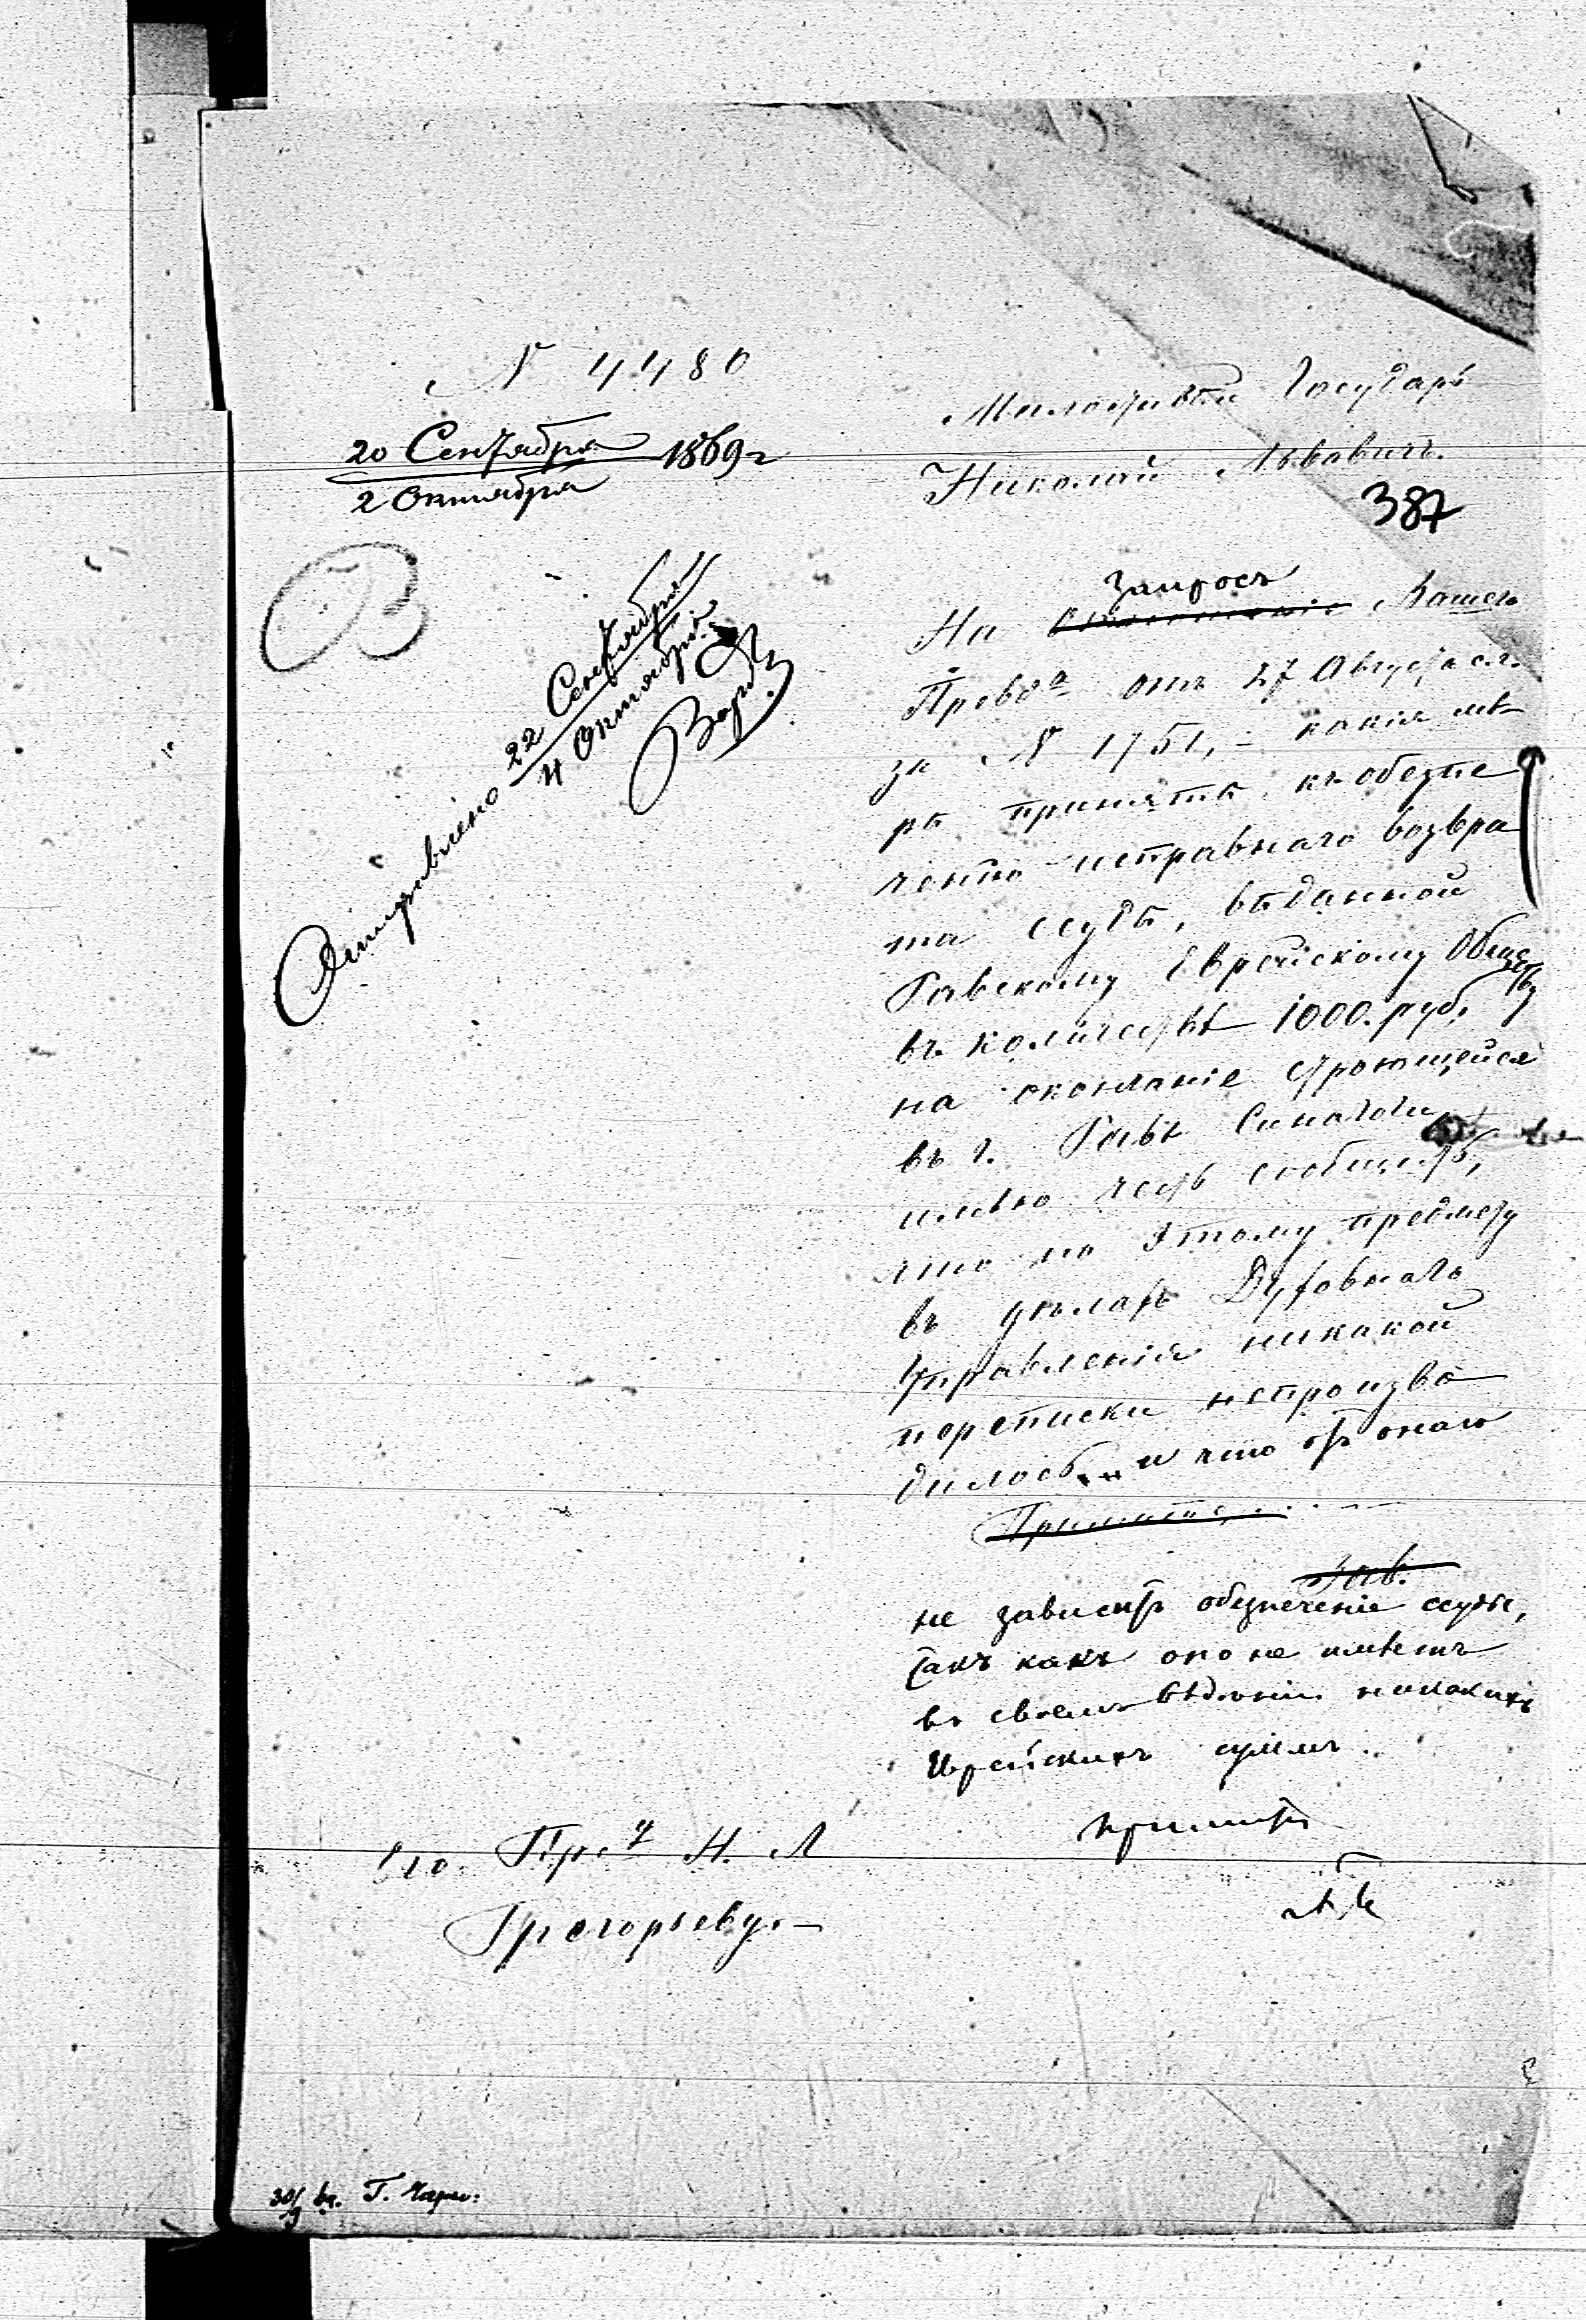 № 4480
20 Сентября 1869 г
2 Октября
Отправлено 22 Сентября
4 Октября
Милостивый Государь
Николай Львовичъ.
387
запросъ
На Вашего
Превва отъ 27 Августа с.г.
за № 1751, – какія мѣ-
ры приняты къ обезпе
ченію исправнаго возвра
та ссуды, выданной
Равскому Еврейскому Обществу
въ количествѣ 1000. руб.
на окончаніе строющейся
въ г. Равѣ Синагоги,
имѣю честь сообщить,
что по этому предмету
въ дѣлахъ Духовнаго
Управленія никакой
переписки непроизво
дилось и что отъ онаго
Примите,
не зависитъ обезпеченіе ссуды,
такъ какъ оно не имѣетъ
въ своемъ вѣденіи никакихъ
Еврейскихъ суммъ.
Примите
Его Пре-у Н. Л
Григорьеву.–